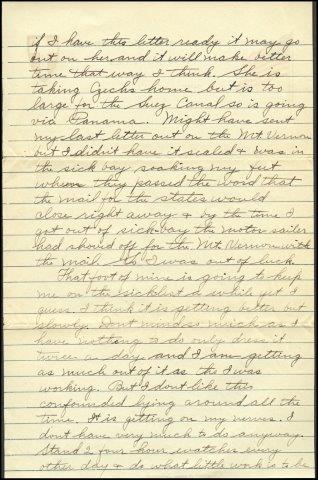 if I have this letter ready it may go
out on her and it will make better
time that way I think. She is
taking Czechs home but is too
large for the Suez Canal so is going
via Panama. Might have sent
my last letter out on the Mt. Vernon
but I didn't have it sealed & was in
the sick bay soaking my feet
when they passed the word that
the mail for the states would
close right away & by the time I
got out of sick bay the motor sailer
had shoved off for the Mt. Vernon with
the mail so I was out of luck.
That foot of mine is going to keep
me on the sicklist a while yet I
guess. I think it is getting better but
slowly. Dont mind so much as I
have nothing to do only dress it
twice a day and I am getting
as much out of it as tho I was
working. But I dont like this
confounded lying around all the
time. It is getting on my nerves. I
dont have very much to do anyway.
Stand 2 four hour watches every
other day & do what little work is to be